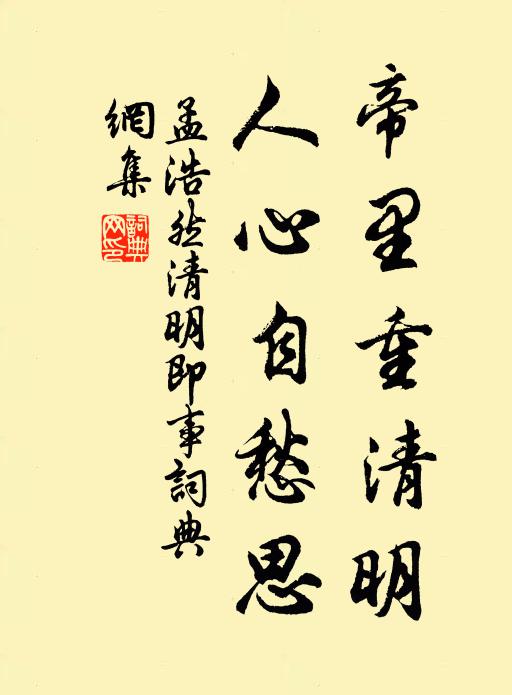 帝里重清明
人心自愁思
孟浩然清明即事詞典
網集
詞典
网印